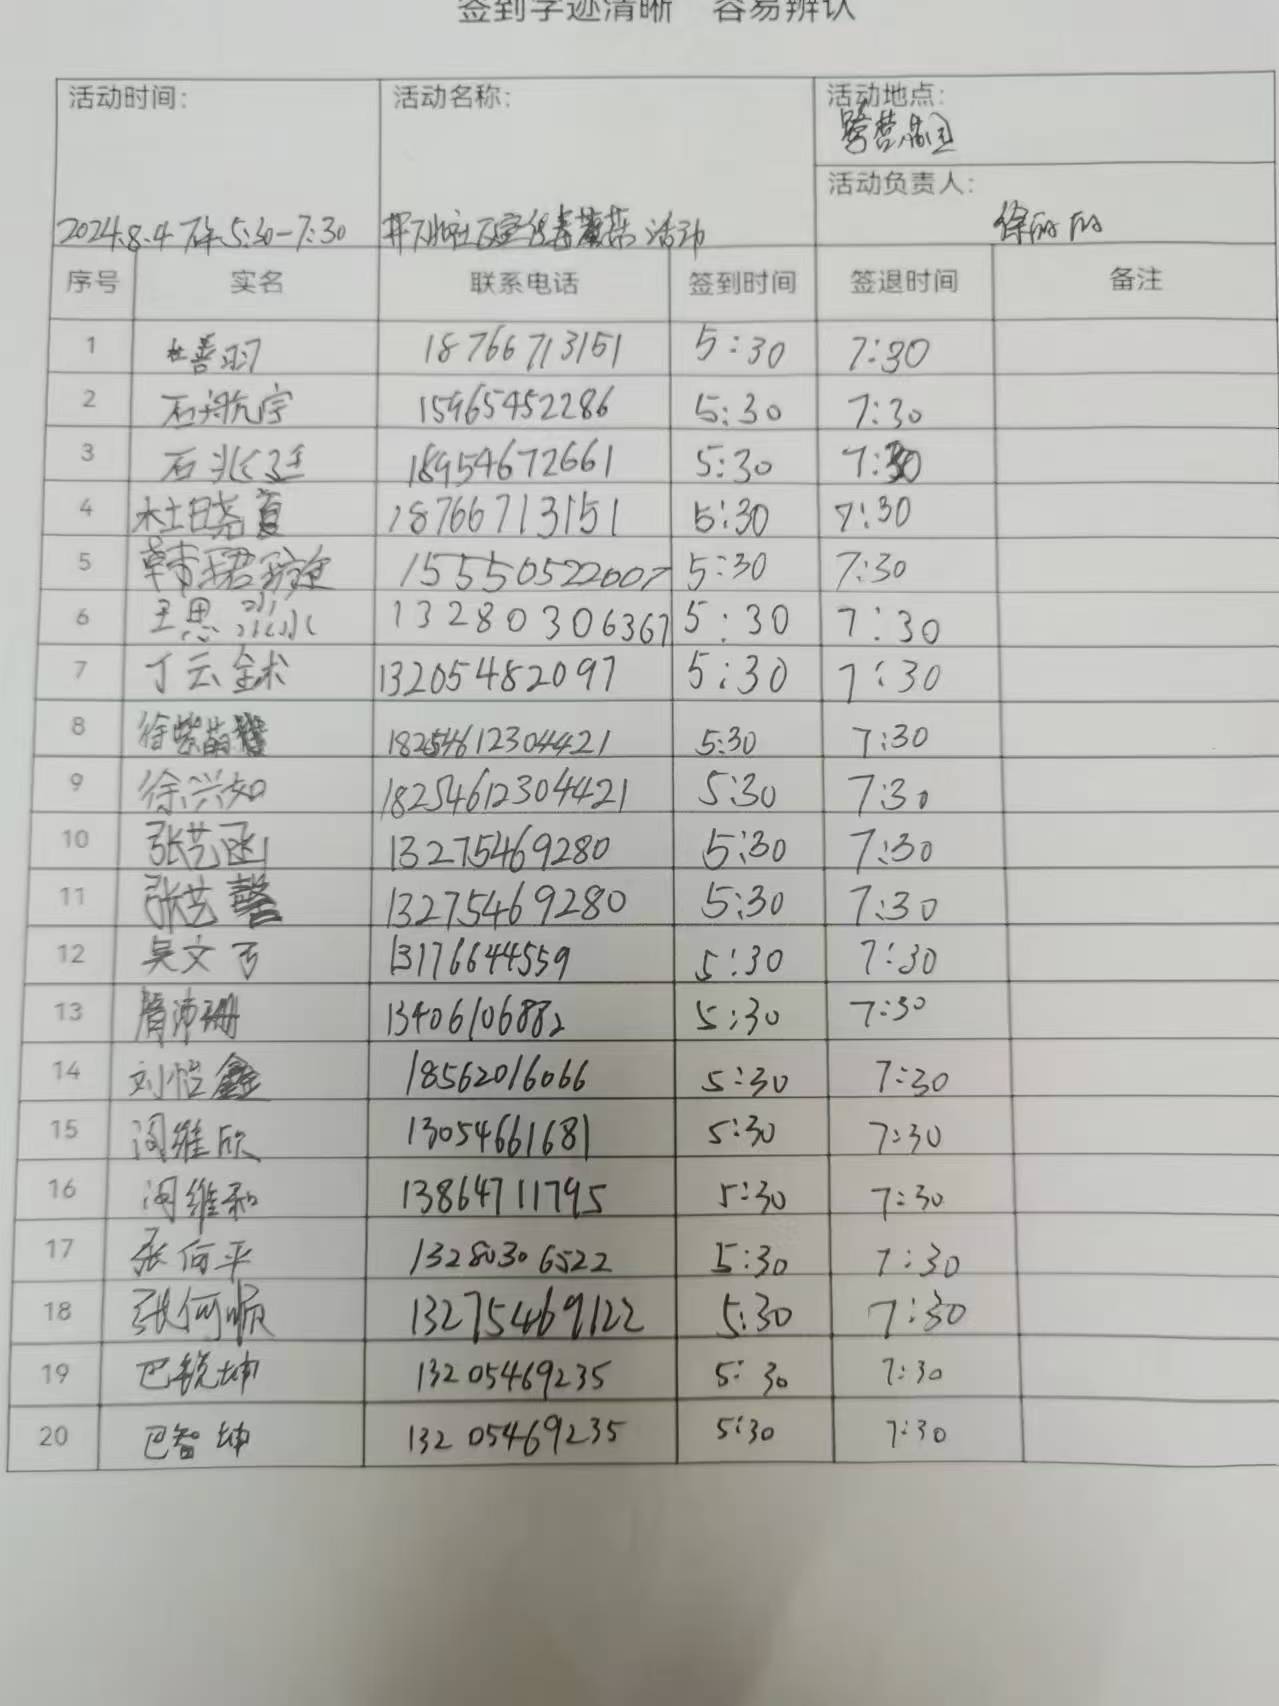 签到字迹清晰 容易辨认
活动时间： 活动名称： 活动地点：
活动负责人：
2024.8.4 下午5:30-7:30 活动 徐丽丽
序号 实名 联系电话 签到时间 签退时间 备注
1 杜善羽 18766713151 5:30 7:30
2 石翔宇 15965452286 5:30 7:30
3 石兆廷 18954672661 5:30 7:30
4 杜晓夏 18766713151 5:30 7:30
5 韩君 15550522007 5:30 7:30
6 王思淼 13280306367 5:30 7:30
7 丁云鉥 13205482097 5:30 7:30
8 徐紫萌 18254612304421 5:30 7:30
9 徐兴如 18254612304421 5:30 7:30
10 张艺函 13275469280 5:30 7:30
11 张艺馨 13275469280 5:30 7:30
12 吴文丐 13176644559 5:30 7:30
13 沛珊 13406106882 5:30 7:30
14 刘恺鑫 18562016066 5:30 7:30
15 闵维欣 13054661681 5:30 7:30
16 闵维和 13864711795 5:30 7:30
17 张何平 13280306522 5:30 7:30
18 张何顺 13275469122 5:30 7:30
19 巴锐坤 13205469235 5:30 7:30
20 巴智坤 13205469235 5:30 7:30